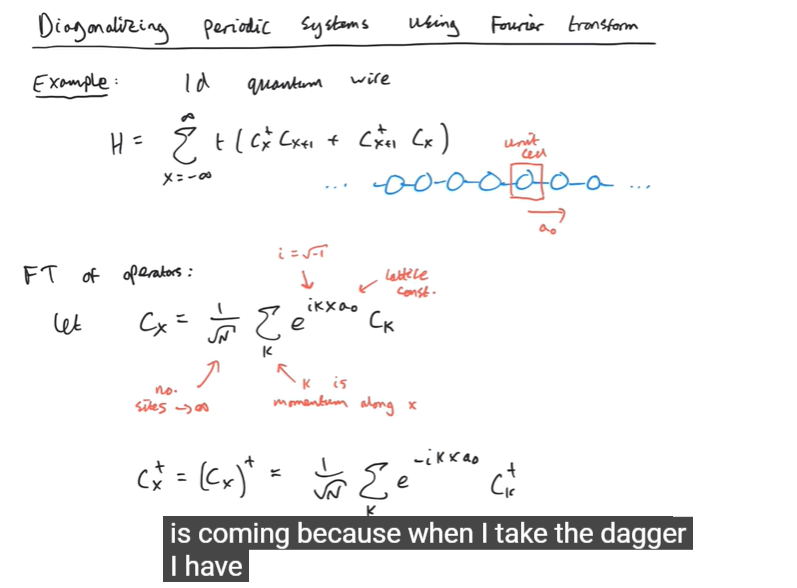 Diagonalizing periodic systems using Fourier transform
Example: 1d quantum wire
H = ∑_{x=-∞}^{∞} t ( C_x^† C_{x+1} + C_{x+1}^† C_x )
unit
cell
... ...
a₀
i = √-1
FT of operators:
lattice
const.
Let C_x = 1/√N ∑_k e^{ikxa₀} C_k
no.
sites → ∞
k is
momentum along x
C_x^† = (C_x)^† = 1/√N ∑_k e^{-ikxa₀} C_k^†
is coming because when I take the dagger
I have